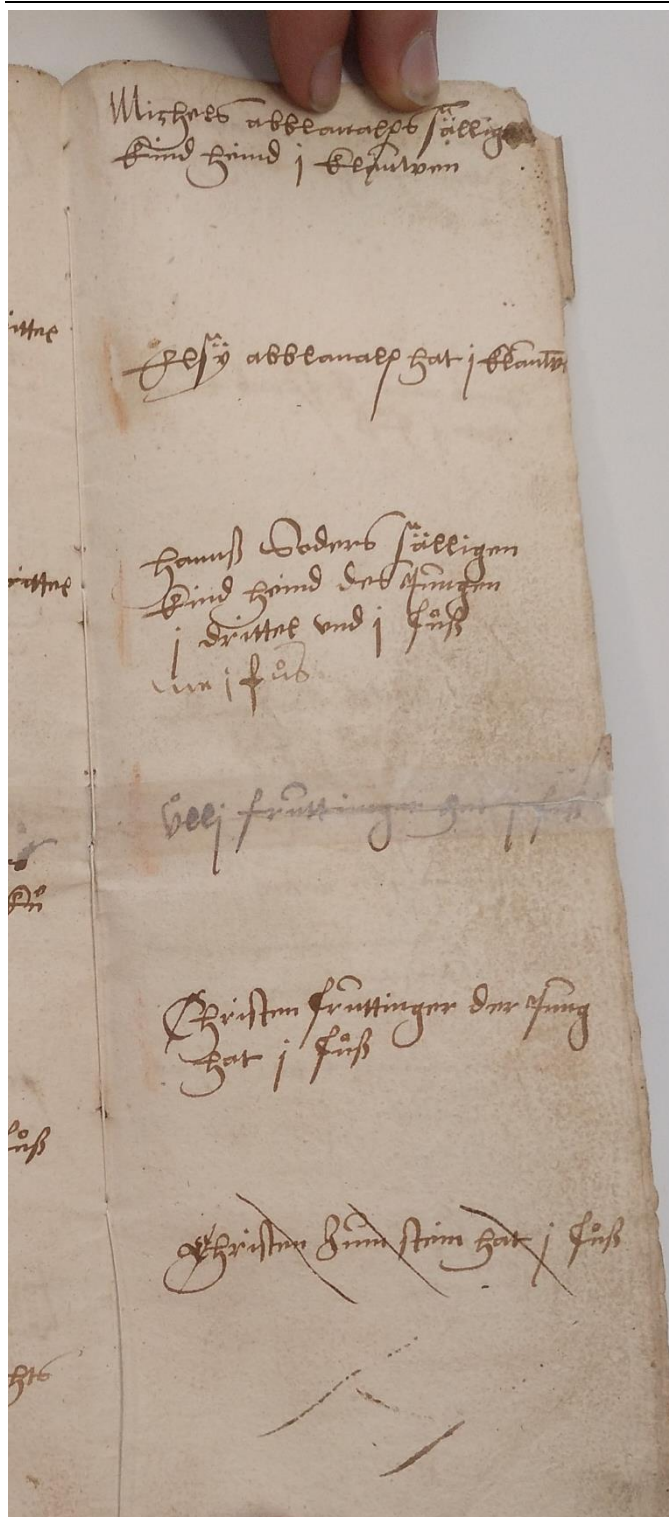 Michels abblanalps sälligen
kind heind j klauwen
ittel
Elsÿ abblanalp hat j klauw
hannß Soders sälligen
rittel
kind heind des Jungen
j drittel vnd j fůß
j fůs
vͦllj fruttinger hat j fůß
ků
Christen fruttinger der Jung
hat j fůß
fůß
Christen Zum stein hat j fůß
hts